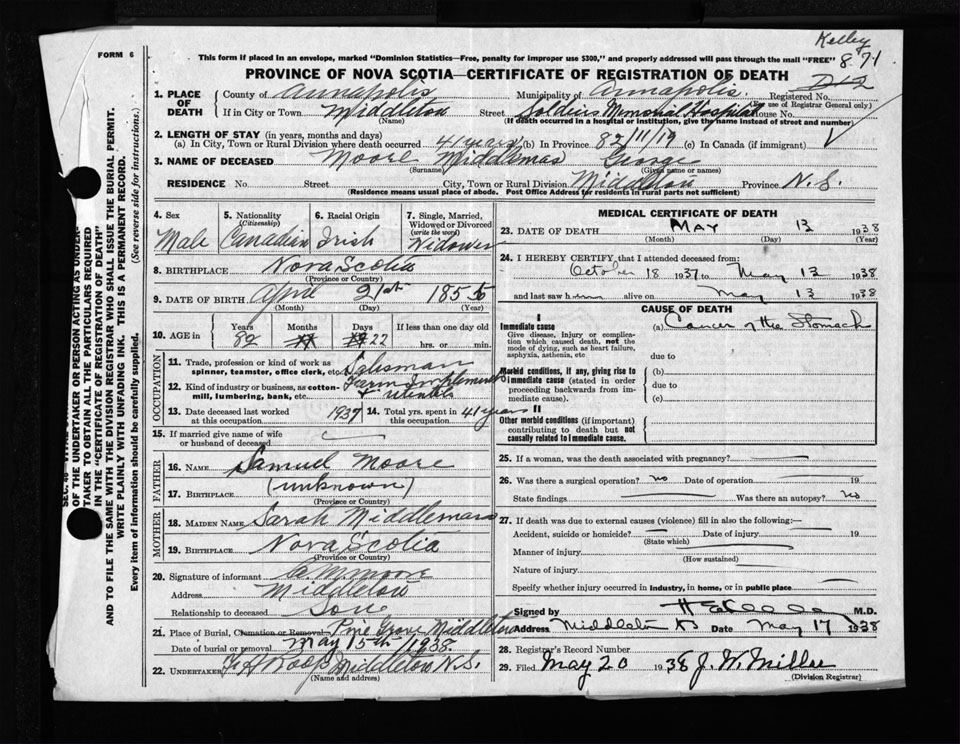 Kelley
8 71
FORM 6
This form if placed in an envelope, marked “Dominion Statistics—Free, penalty for improper use $300,” and properly addressed will pass through the mail “FREE”
PROVINCE OF NOVA SCOTIA—CERTIFICATE OF REGISTRATION OF DEATH
1. PLACE OF DEATH County of Annapolis Municipality of Annapolis Registered No.
(For use of Registrar General only)
If in City or Town Middleton Street Soldiers Memorial Hospital House No.
(If death occurred in a hospital or institution, give the name instead of street and number)
2. LENGTH OF STAY (in years, months and days)
(a) In City, Town or Rural Division where death occurred 41 years (b) In Province 82/11/19 (c) In Canada (if immigrant)
3. NAME OF DECEASED Moore Middlemas George
(Surname) (Given name or names)
RESIDENCE No. Street City, Town or Rural Division Middleton Province N.S.
(Residence means usual place of abode. Post Office Address for residents in rural parts not sufficient)
4. Sex Male
5. Nationality (Citizenship) Canadian
6. Racial Origin Irish
7. Single, Married, Widowed or Divorced (write the word) Widower
8. BIRTHPLACE Nova Scotia
(Province or Country)
9. DATE OF BIRTH April 21st 1855
(Month) (Day) (Year)
10. AGE in Years 82 Months Days 22 If less than one day old hrs. or min.
OCCUPATION
11. Trade, profession or kind of work as spinner, teamster, office clerk, etc. Salesman
12. Kind of industry or business, as cotton-mill, lumbering, bank, etc. Farm Implements
13. Date deceased last worked at this occupation 1937 14. Total yrs. spent in this occupation 41 years
15. If married give name of wife or husband of deceased
FATHER
16. NAME Samuel Moore
17. BIRTHPLACE (unknown)
(Province or Country)
MOTHER
18. MAIDEN NAME Sarah Middlemas
19. BIRTHPLACE Nova Scotia
(Province or Country)
20. Signature of informant Moore
Address Middleton
Relationship to deceased Son
21. Place of Burial, Cremation or Removal Pine Grove Middleton
Date of burial or removal May 15th 1938
22. UNDERTAKER Middleton N.S.
(Name and address)
MEDICAL CERTIFICATE OF DEATH
23. DATE OF DEATH MAY 13 1938
(Month) (Day) (Year)
24. I HEREBY CERTIFY that I attended deceased from:
October 18 1937 to May 13 1938
and last saw him alive on May 13 1938
CAUSE OF DEATH
I
Immediate cause (a) Cancer of the Stomach
Give disease, injury or complication which caused death, not the mode of dying, such as heart failure, asphyxia, asthenia, etc due to
Morbid conditions, if any, giving rise to immediate cause (stated in order proceeding backwards from immediate cause). (b) due to (c)
II
Other morbid conditions (if important) contributing to death but not causally related to immediate cause.
25. If a woman, was the death associated with pregnancy?
26. Was there a surgical operation? no Date of operation 19
State findings Was there an autopsy? no
27. If death was due to external causes (violence) fill in also the following:—
Accident, suicide or homicide? Date of injury 19
(State which)
Manner of injury
(How sustained)
Nature of injury
Specify whether injury occurred in industry, in home, or in public place
Signed by M.D.
Address Middleton NS Date May 17 1938
28. Registrar's Record Number
29. Filed May 20 1938 J. W. Miller
(Division Registrar)
OF THE UNDERTAKER OR PERSON ACTING AS UNDER-
TAKER TO OBTAIN ALL THE PARTICULARS REQUIRED
IN THE “CERTIFICATE OF REGISTRATION OF DEATH”
AND TO FILE THE SAME WITH THE DIVISION REGISTRAR WHO SHALL ISSUE THE BURIAL PERMIT.
WRITE PLAINLY WITH UNFADING INK. THIS IS A PERMANENT RECORD.
Every item of information should be carefully supplied. (See reverse side for instructions.)